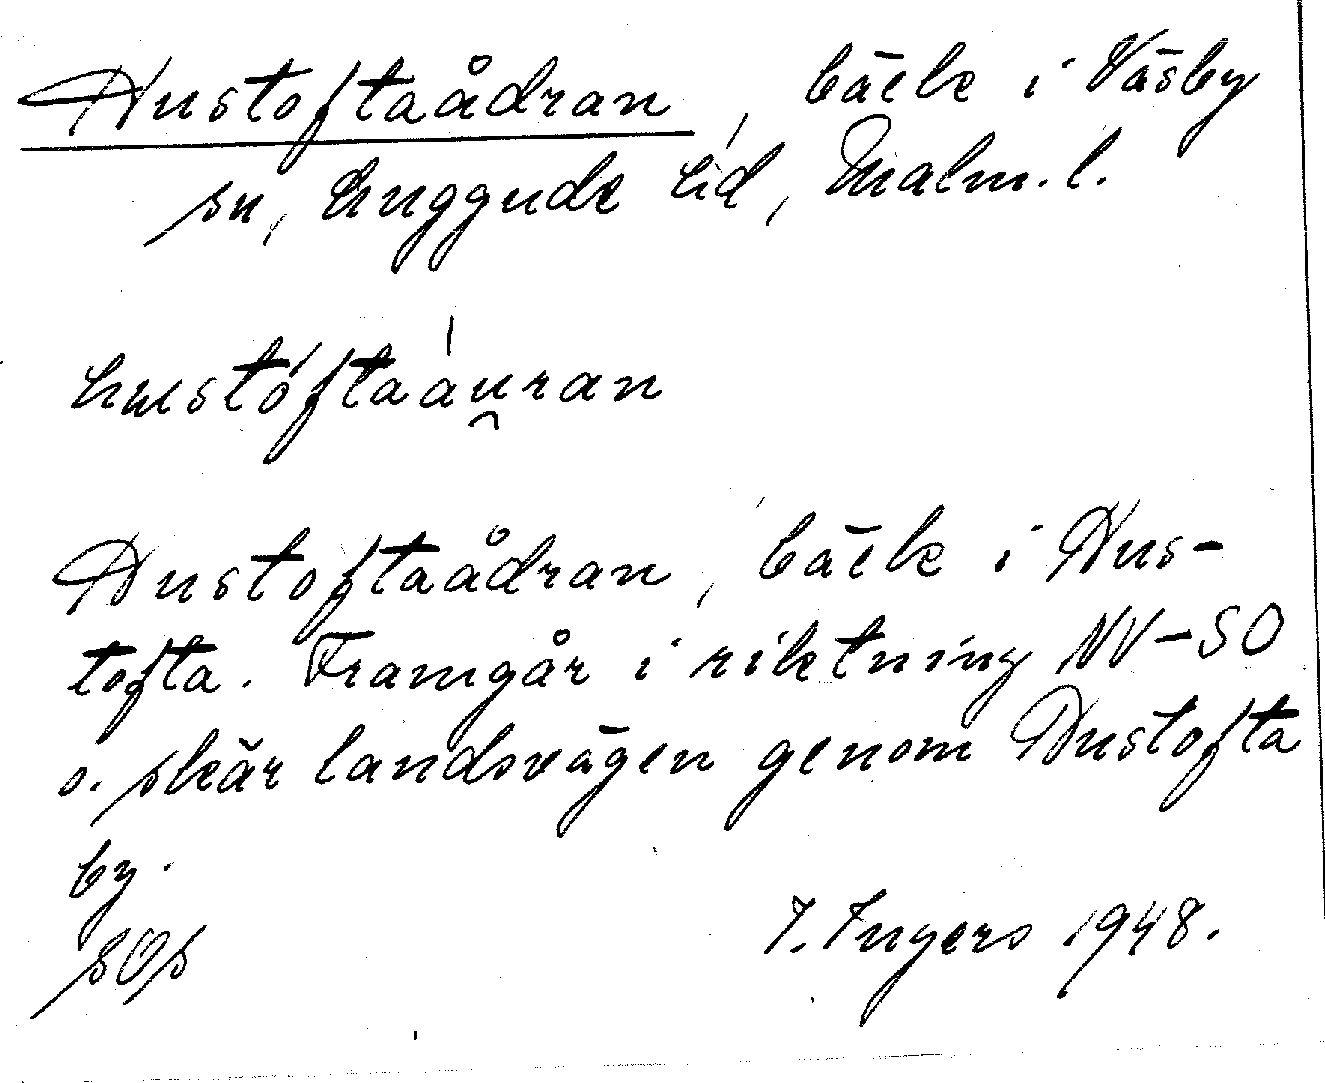 Hustoftaådran, bäck i Väsby
sn, Luggude hd, Malm. l.
hustóftaáu̯ran
Hustoftaådran, bäck i Hus-
tofta. Framgår i riktning NV–SO
o. skär landsvägen genom Hustofta
by.
I. Ingers 1948.